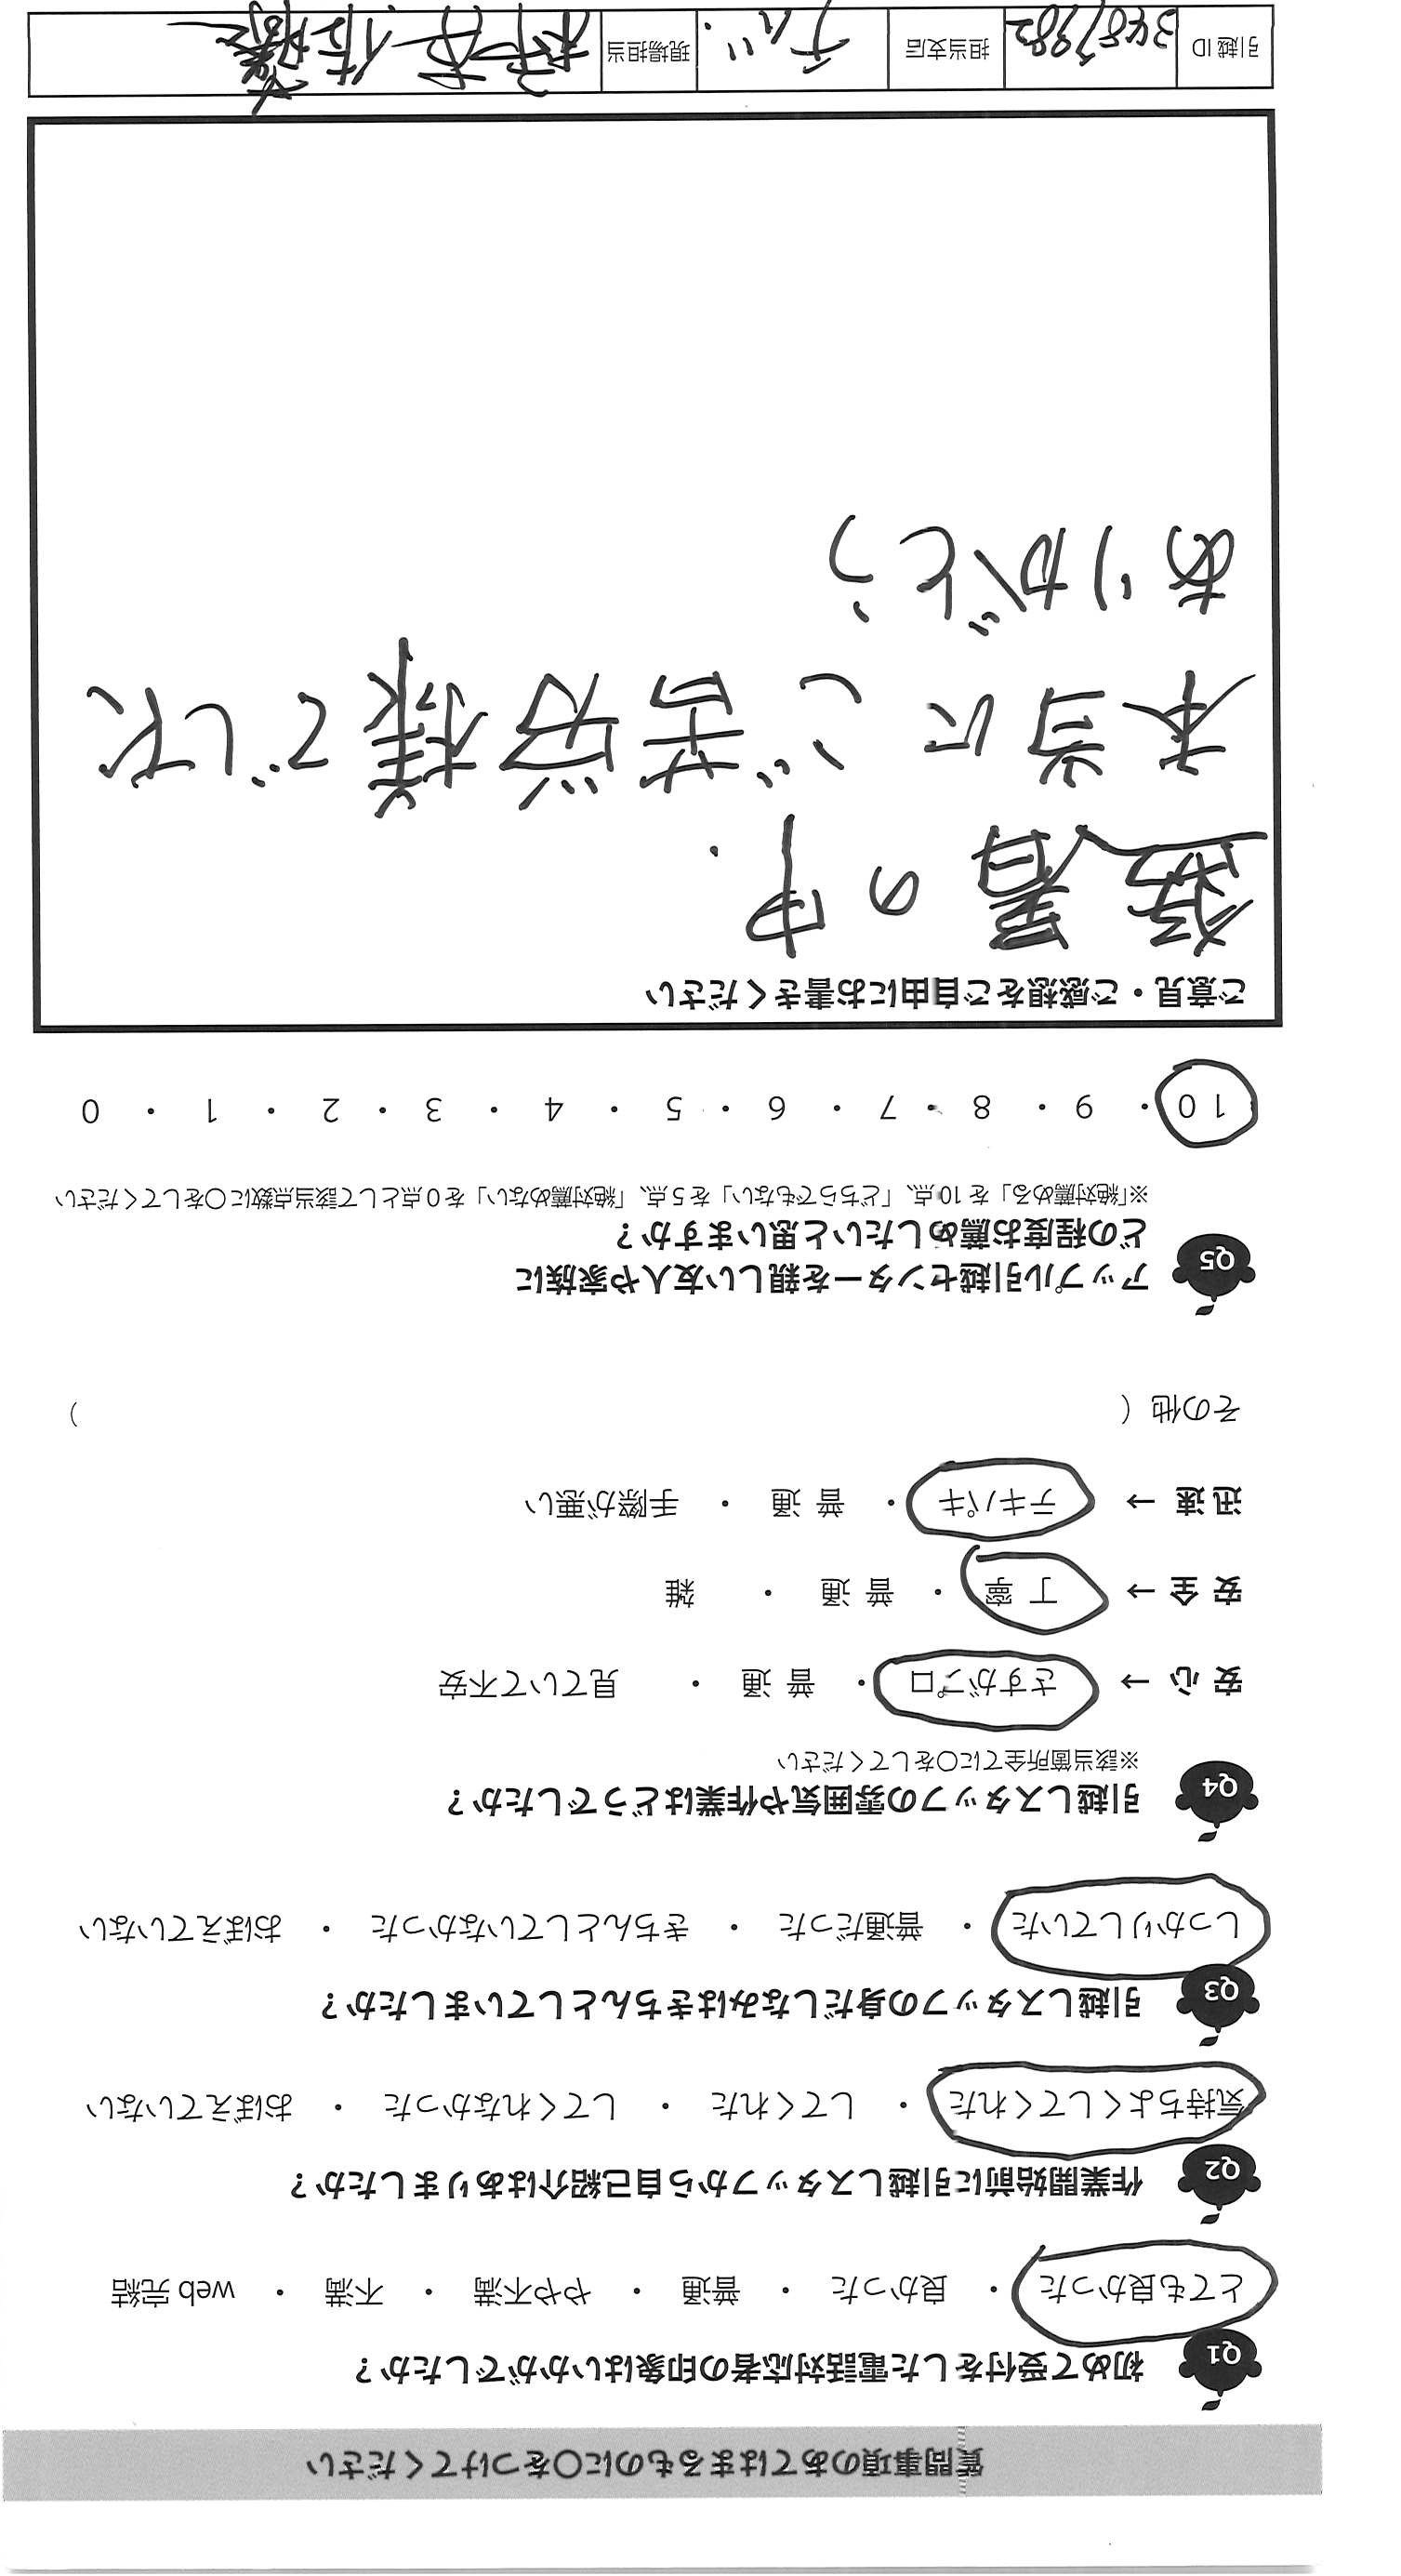 質問事項のあてはまるものに○をつけてください
Q1 初めて受付をした電話対応者の印象はいかがでしたか？
とても良かった ・ 良かった ・ 普通 ・ やや不満 ・ 不満 ・ web 完結
Q2 作業開始前に引越しスタッフから自己紹介はありましたか？
気持ちよくしてくれた ・ してくれた ・ してくれなかった ・ おぼえていない
Q3 引越しスタッフの身だしなみはきちんとしていましたか？
しっかりしていた ・ 普通だった ・ きちんとしていなかった ・ おぼえていない
Q4 引越しスタッフの雰囲気や作業はどうでしたか？
※該当箇所全てに○をしてください
安 心 → さすがプロ ・ 普 通 ・ 見ていて不安
安 全 → 丁 寧 ・ 普 通 ・ 雑
迅 速 → テキパキ ・ 普 通 ・ 手際が悪い
その他（ ）
Q5 アップル引越センターを親しい友人や家族に
どの程度お薦めしたいと思いますか？
※「絶対薦める」を 10 点、「どちらでもない」を 5 点、「絶対薦めない」を 0 点として該当点数に○をしてください
10 ・ 9 ・ 8 ・ 7 ・ 6 ・ 5 ・ 4 ・ 3 ・ 2 ・ 1 ・ 0
ご意見・ご感想をご自由にお書きください
極暑の中.
本当にご苦労様でした
ありがとう
引越 ID 3487982 担当支店 千バ. 現場担当